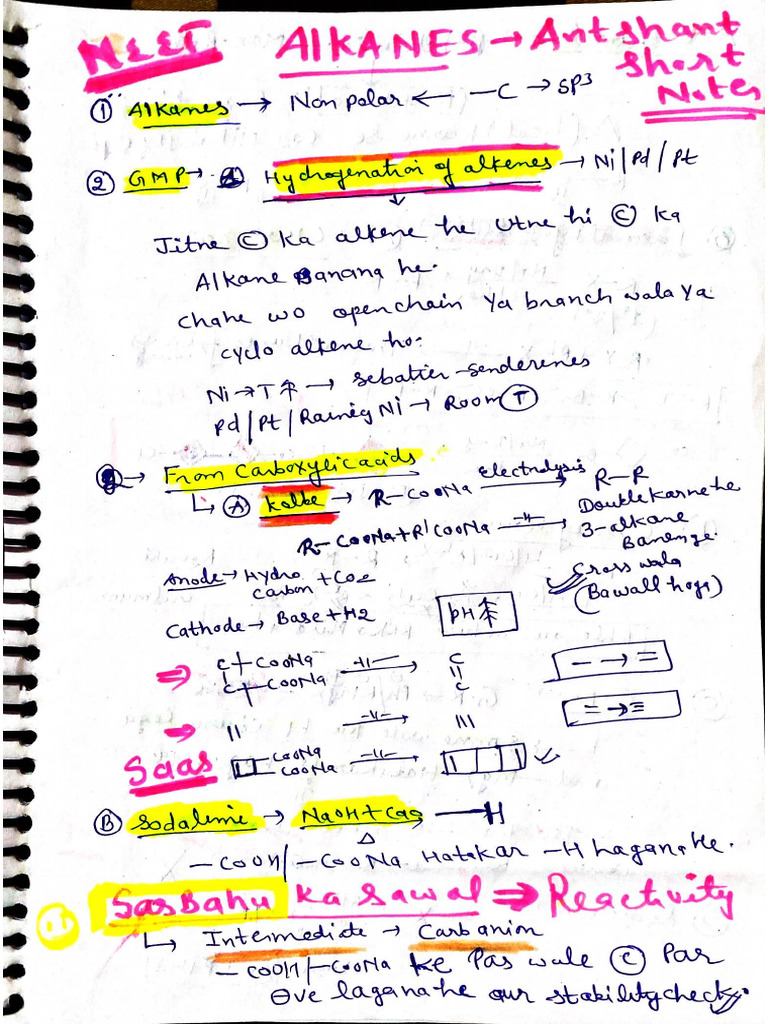 NEET ALKANES → Antshant
Short
Notes
① Alkanes → Non polar ← —C → SP³
② GMP → Hydrogenation of alkenes → Ni/Pd/Pt
Jitne Ⓒ Ka alkene he utne hi Ⓒ Ka
Alkane Banana he.
Chahe wo openchain Ya branch wala Ya
cyclo alkene ho.
Ni → T ↑ → Sebatier-Senderenes
Pd/Pt/Raineig Ni → Room Ⓣ
→ From Carboxylic acids
↳ Ⓐ Kolbe → R–COONa electrolysis → R–R
Double karne he
R–COONa + R'COONa —〃→ 3-alkane
Banenge.
Cross wala
(Bawall hoga)
Anode → Hydro carbon + CO2
Cathode → Base + H2 pH ↑
⇒ C COONa
C COONa —〃→ C
॥
C — → =
⇒ = —〃→ ≡ = → ≡
Saas COONa
COONa —〃→ ✓
Ⓑ Sodalime → NaOH + CaO —H
Δ
—COOH/—COONa Hatakar —H lagana He.
Sas Bahu ka sawal ⇒ Reactivity
↳ Intermediate → Carbanion
—COOH/—COONa ke Pas wale Ⓒ Par
⊖ve lagana he aur stability check